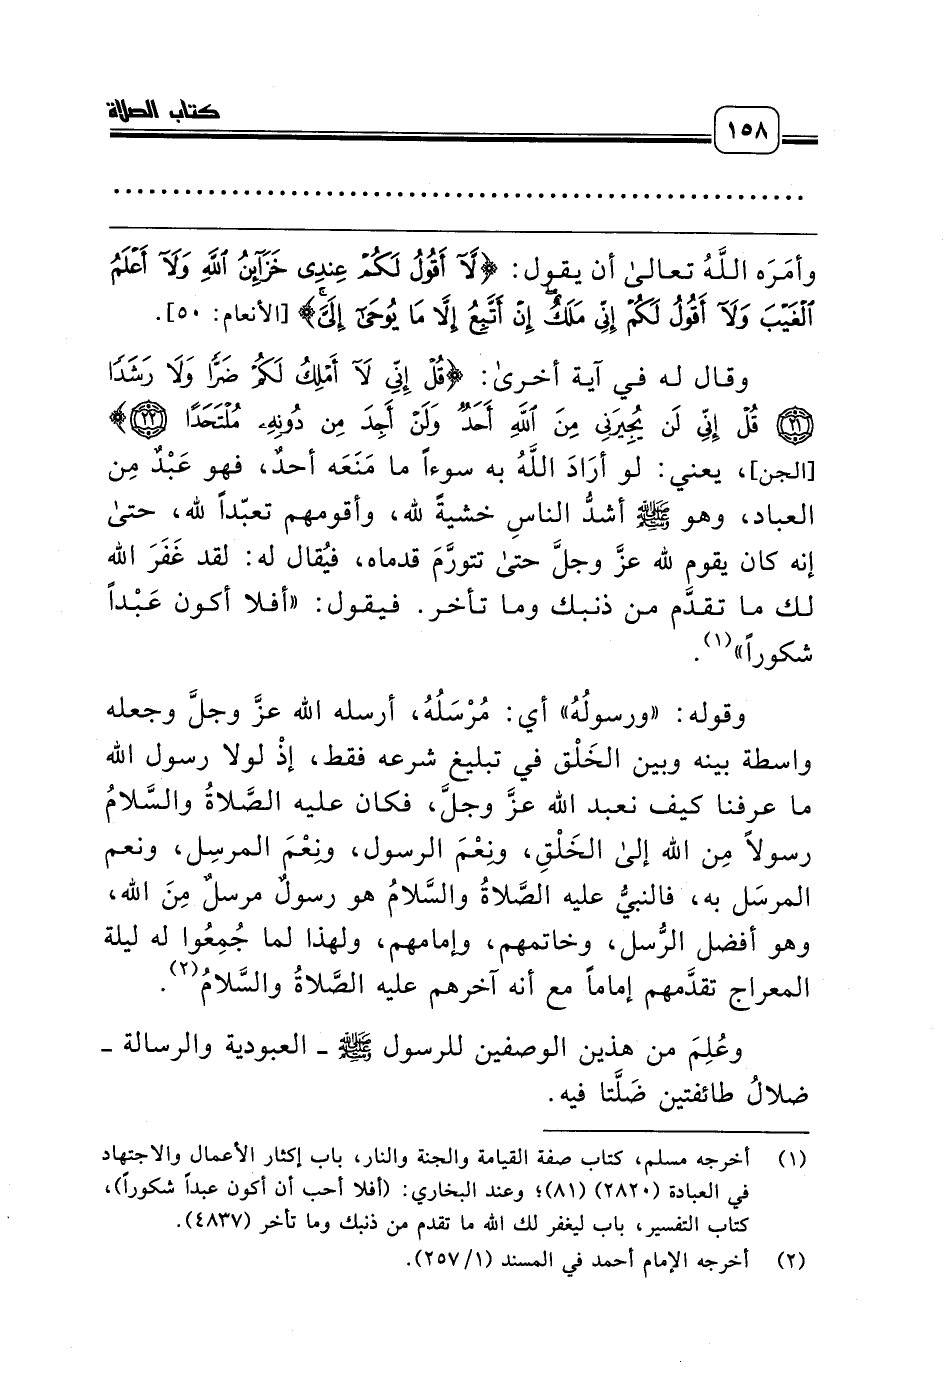 كتاب الصلاة
١٥٨
وأمَرَه اللَّهُ تعالىٰ أن يقول: ﴿لَّآ أَقُولُ لَكُمْ عِندِى خَزَآئِنُ ٱللَّهِ وَلَآ أَعْلَمُ
ٱلْغَيْبَ وَلَآ أَقُولُ لَكُمْ إِنِّى مَلَكٌ ۖ إِنْ أَتَّبِعُ إِلَّا مَا يُوحَىٰٓ إِلَىَّ ۚ﴾ [الأنعام: ٥٠].
وقال له في آية أخرىٰ: ﴿قُلْ إِنِّى لَآ أَمْلِكُ لَكُمْ ضَرًّا وَلَا رَشَدًا
٢١ قُلْ إِنِّى لَن يُجِيرَنِى مِنَ ٱللَّهِ أَحَدٌ وَلَنْ أَجِدَ مِن دُونِهِۦ مُلْتَحَدًا ٢٢﴾
[الجن]، يعني: لو أرَادَ اللَّهُ به سوءاً ما مَنَعَه أحدٌ، فهو عَبْدٌ مِن
العباد، وهو ﷺ أشدُّ الناسِ خشيةً لله، وأقومهم تعبّداً لله، حتىٰ
إنه كان يقوم لله عزَّ وجلَّ حتىٰ تتورَّمَ قدماه، فيُقال له: لقد غَفَرَ الله
لك ما تقدَّم من ذنبك وما تأخر. فيقول: «أفلا أكون عَبْداً
شكوراً»(١).
وقوله: «ورسولُهُ» أي: مُرْسَلُهُ، أرسله الله عزَّ وجلَّ وجعله
واسطة بينه وبين الخَلْق في تبليغ شرعه فقط، إذْ لولا رسول الله
ما عرفنا كيف نعبد الله عزَّ وجلَّ، فكان عليه الصَّلاةُ والسَّلامُ
رسولاً مِن الله إلىٰ الخَلْقِ، ونِعْمَ الرسول، ونِعْمَ المرسِل، ونعم
المرسَل به، فالنبيُّ عليه الصَّلاةُ والسَّلامُ هو رسولٌ مرسلٌ مِنَ الله،
وهو أفضل الرُّسل، وخاتمهم، وإمامهم، ولهذا لما جُمِعُوا له ليلة
المعراج تقدَّمهم إماماً مع أنه آخرهم عليه الصَّلاةُ والسَّلامُ(٢).
وعُلِمَ من هذين الوصفين للرسول ﷺ ـ العبودية والرسالة ـ
ضلالُ طائفتين ضَلَّتا فيه.
(١) أخرجه مسلم، كتاب صفة القيامة والجنة والنار، باب إكثار الأعمال والاجتهاد
في العبادة (٢٨٢٠) (٨١)؛ وعند البخاري: (أفلا أحب أن أكون عبداً شكوراً)،
كتاب التفسير، باب ليغفر لك الله ما تقدم من ذنبك وما تأخر (٤٨٣٧).
(٢) أخرجه الإمام أحمد في المسند (١/ ٢٥٧).